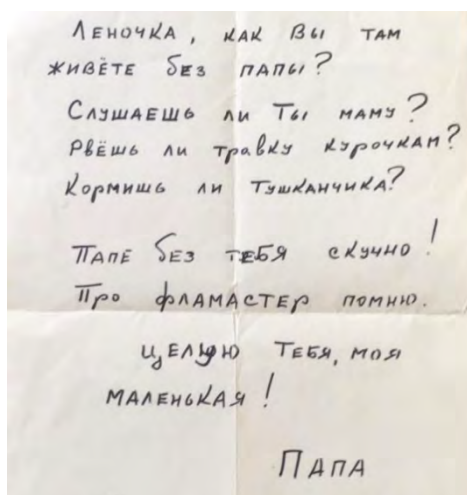 Леночка, как Вы там
живёте без папы?
Слушаешь ли Ты маму?
Рвёшь ли травку курочкам?
Кормишь ли Тушканчика?
Папе без тебя скучно!
Про фламастер помню.
Целую Тебя, моя
маленькая!
Папа